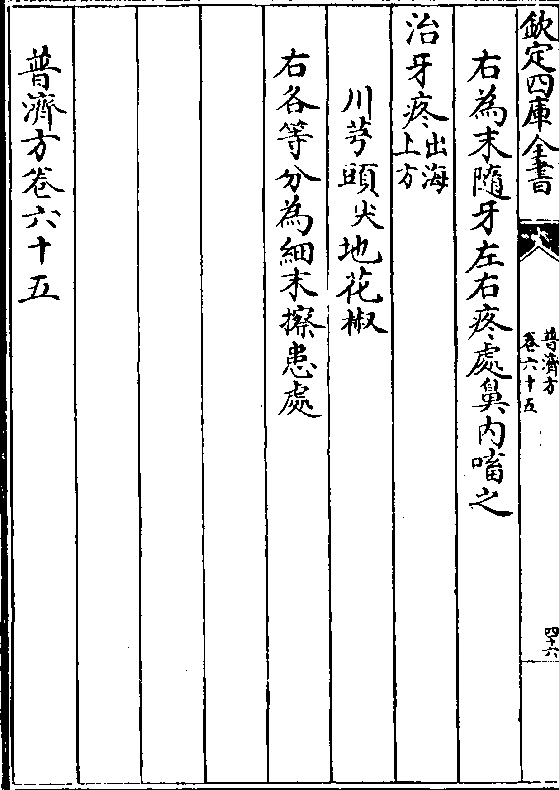 欽定四庫全書
普濟方
卷六十五
四十六
右為末隨牙左右疼處鼻内㗜之
治牙疼出海上方
川芎頭尖地花椒
右各等分為細末擦患處
普濟方卷六十五